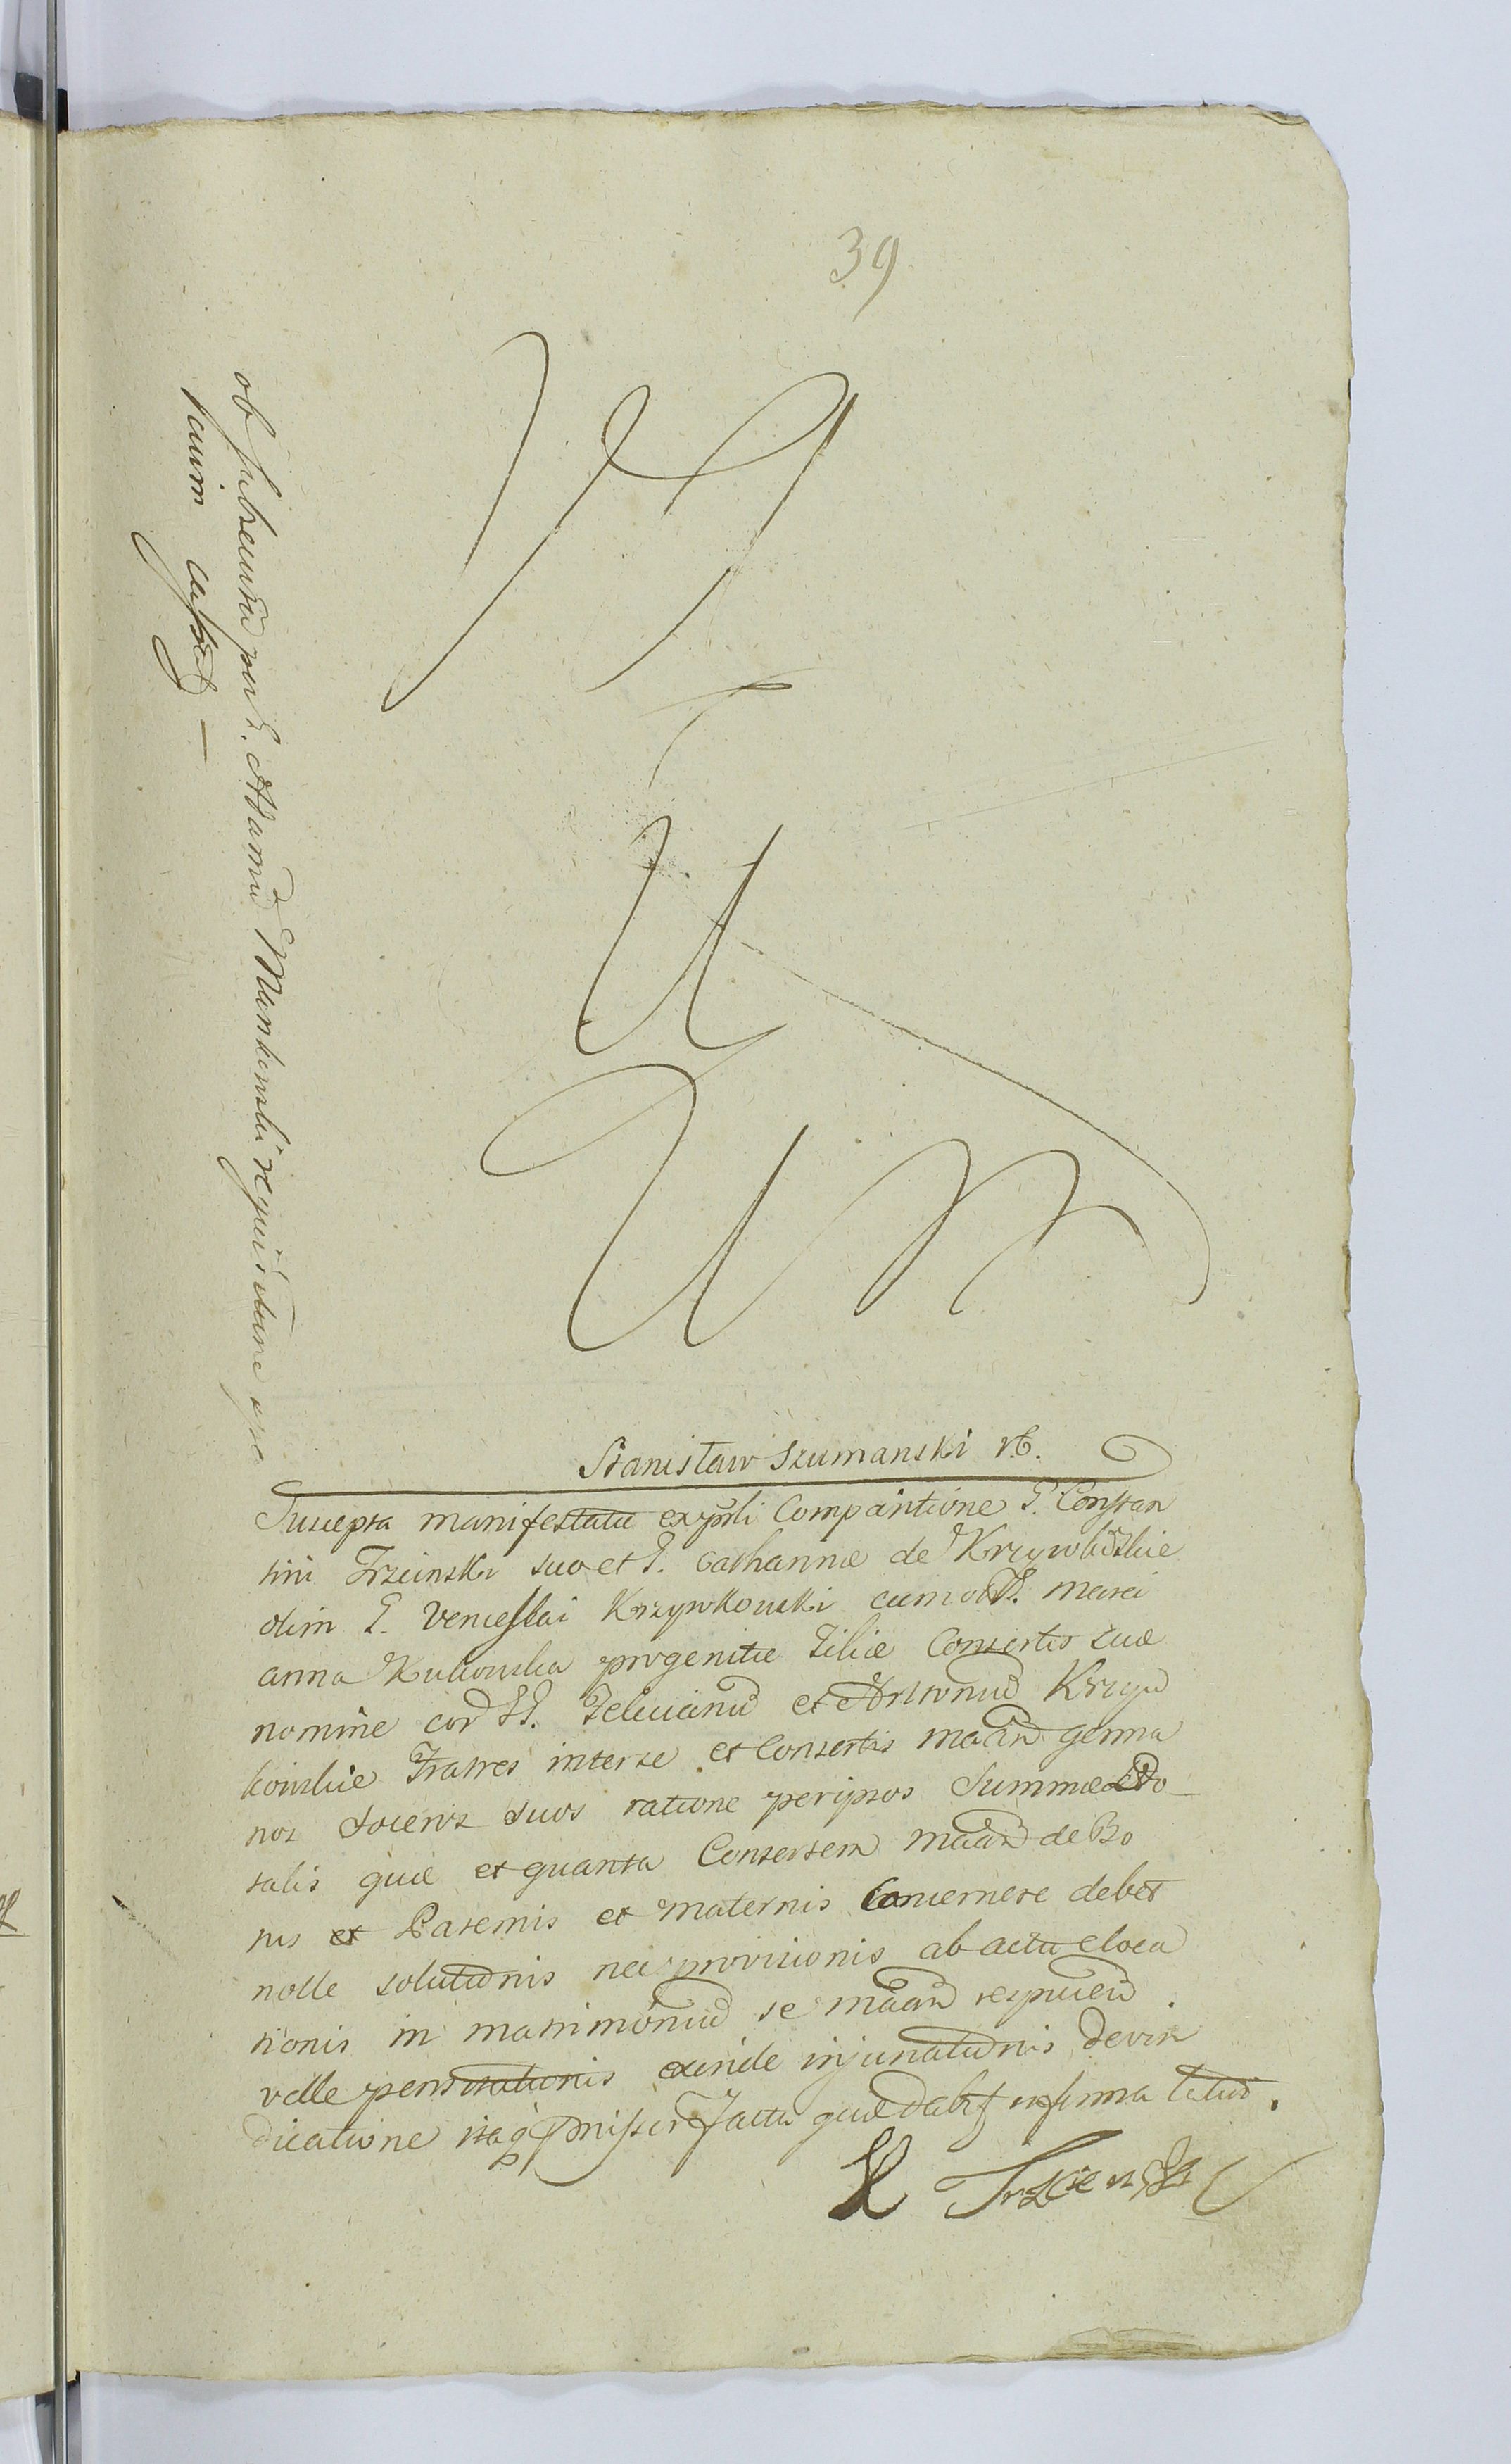 39
ob subsecutā per G. Adamū requisitione
suum cassat —
Stanisław Szumanski
Suscepta manifestatio ex psli Comparitione G. Constan
tini Trzcinski suo et G. Catharinæ de Krzywkowskie
olim G. Venceslai Krzywkowski cum olim G. Mari
anna Kukowska progenitæ Filiæ Consortis suæ
nomine cor GG. Felicianū et Antoniū Krzyw
kowskie Fratres inter se et Consortis maān germa
nos Soceros suos ratione per ipsos Summæ Do
talis quæ et quanta Consortem maān de Bo
nis et Paternis et Maternis Concernere debet
nolle solutionis nec provisionis ab actu eloca
tionis in matrimoniū se maān
velle pensitationis exinde injunationis devin
dicatione itaq præmissor facta
K Trzcienski